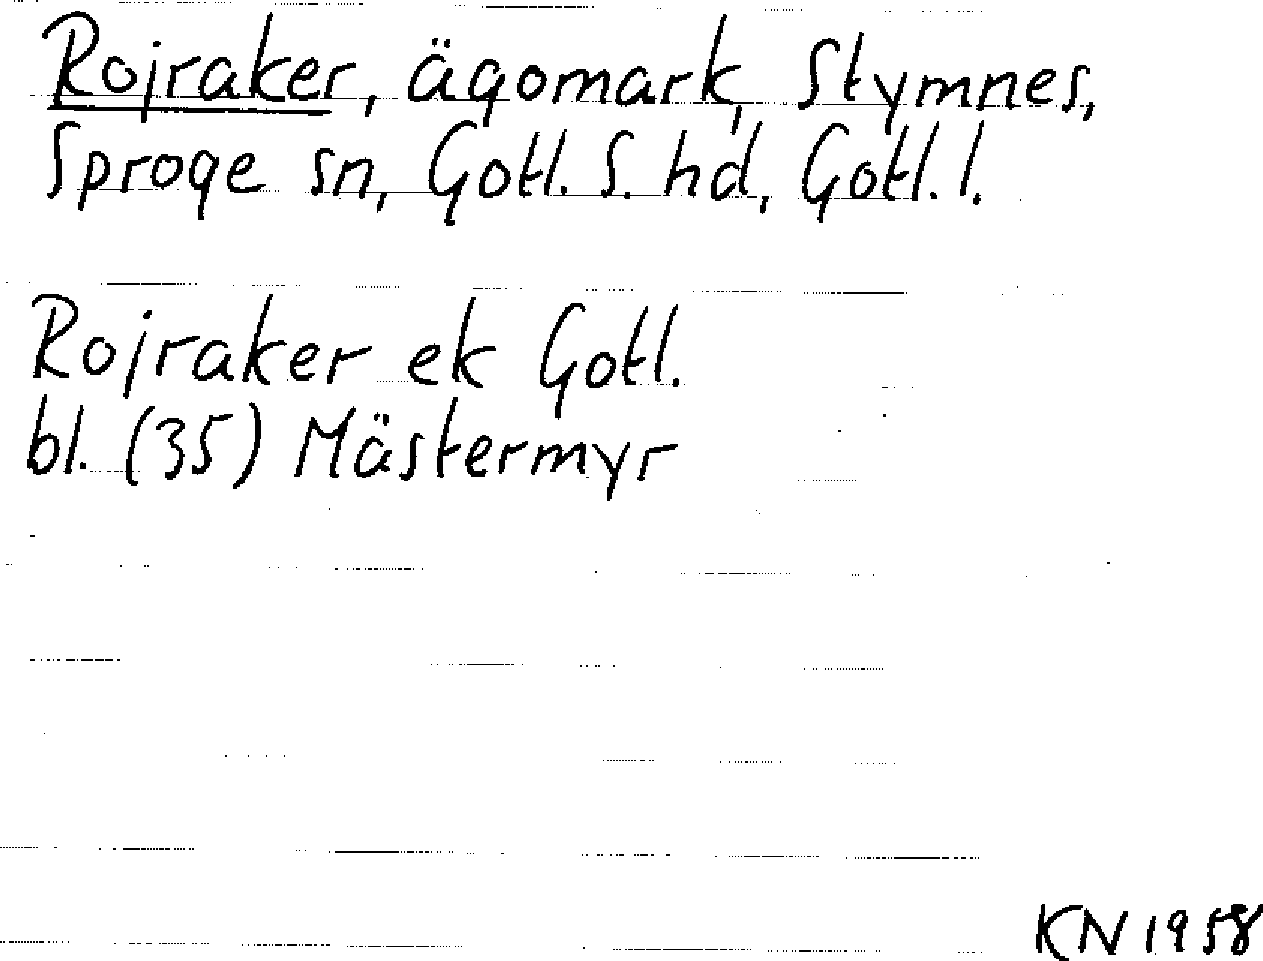 Rojraker, ägomark, Stymnes,
Sproge sn, Gotl. S. hd, Gotl. l.
Rojraker ek Gotl.
bl. (35) Mästermyr
KN 1958